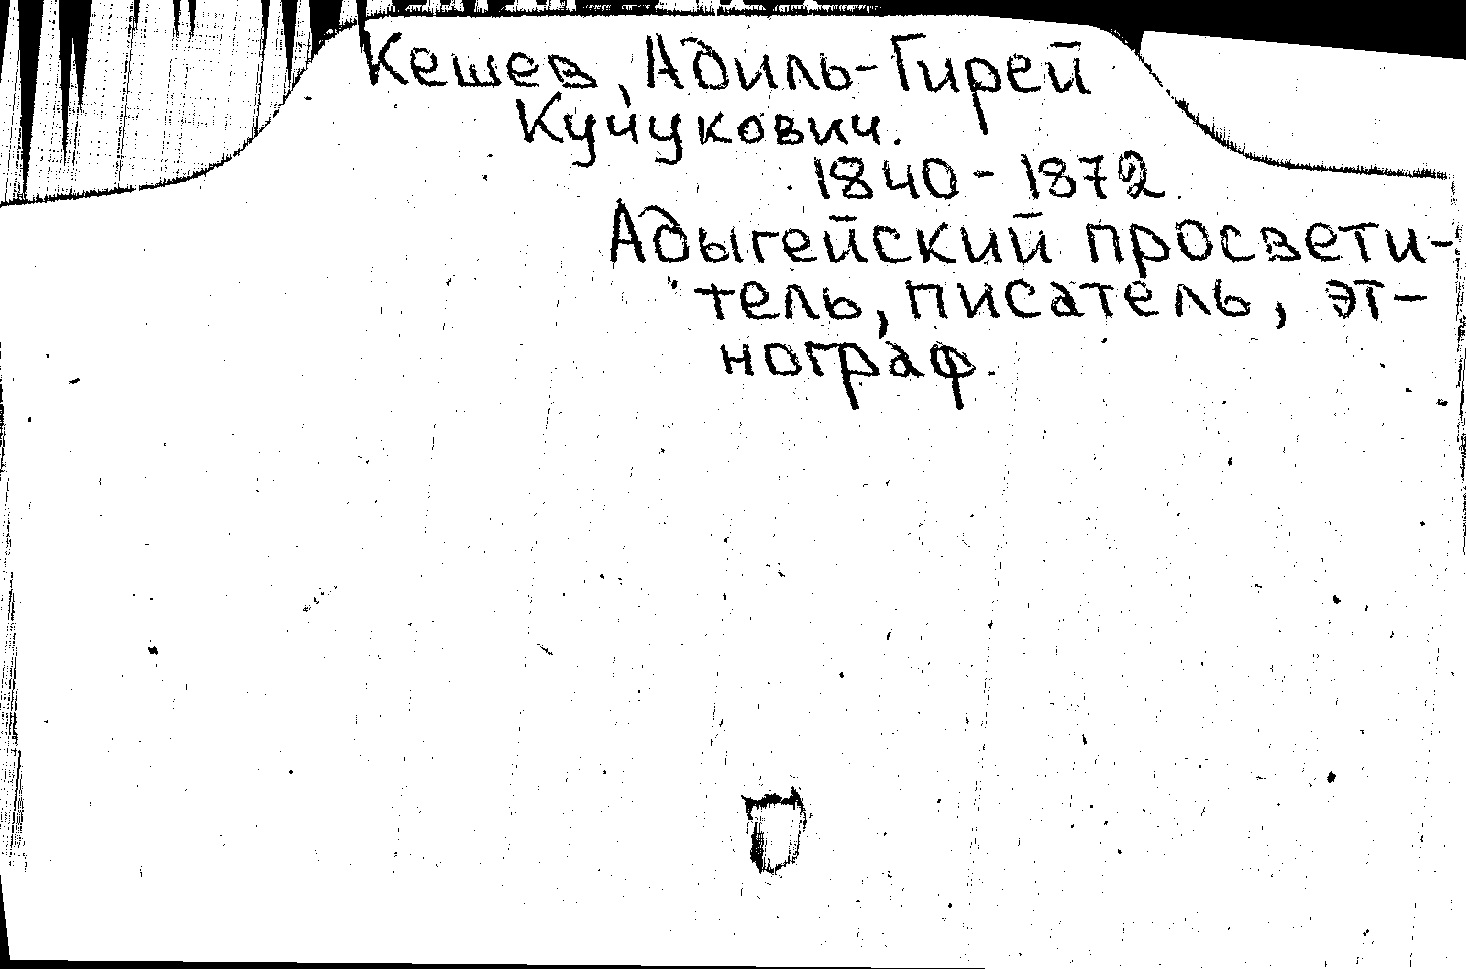 Кешев, Адиль-Гирей
Кучукович.
1840-1872
Адыгейский просвети-
тель, писатель, эт-
нограф.